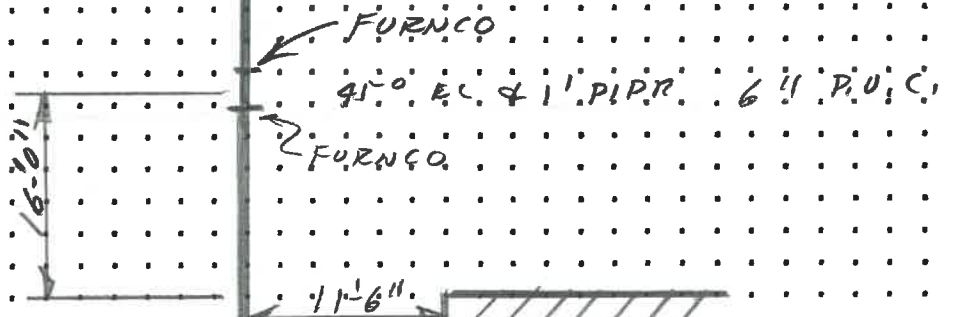 FURNCO
45° EL & 1' PIPE 6" P.V.C.
FURNCO
16'-0"
11'-6"